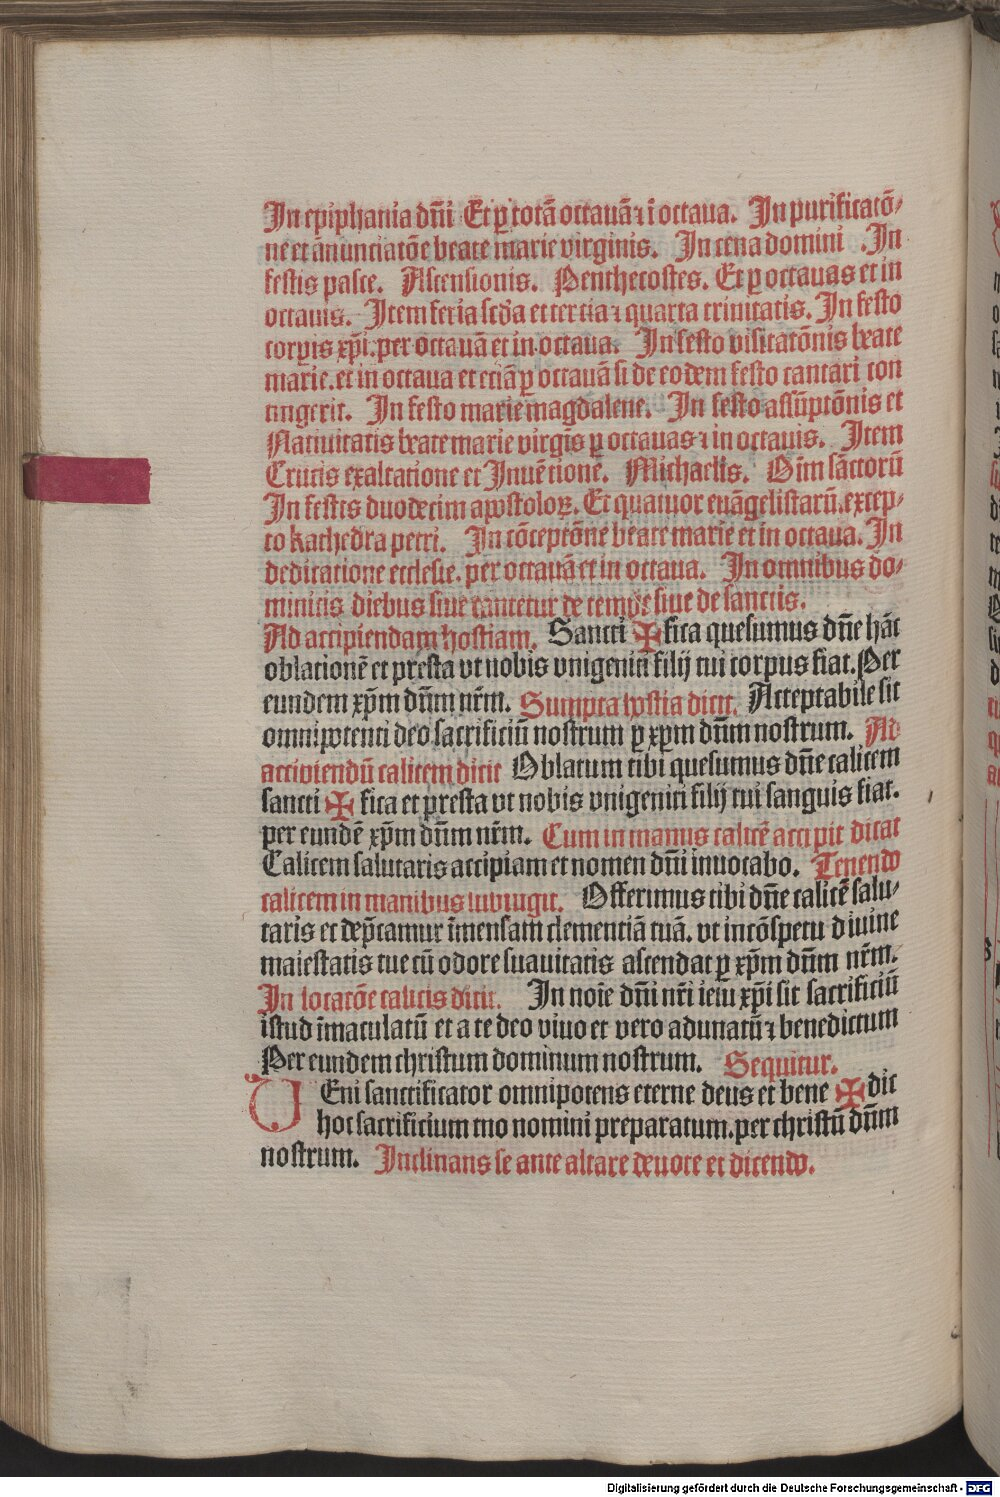 In epiphania dn̄i Et ꝑ totā octauā ⁊ ī octaua. In purificatō⸗
ne et ān̄unciatōe beate marie virginis. In cena domini . In
festis pasce. Ascensionis. Penthecostes. Et ꝑ octauas et in
octauis. Item feria scd̄a et tercia ⁊ quarta trinitatis. In festo
corꝑis xp̄i. per octauā et in octaua. In festo visitatōnis beate
marie. et in octaua et eciā ꝑ octauā si de eodem festo cantari con
tingerit. In festo marie magdalene. In festo assūptōnis et
Natiuitatis beate marie virgīs ꝑ octauas ⁊ in octauis. Item
Crucis exaltatione et Inuētione. Michaelis. Oīm sāctorū
In festis duodecim apostoloꝝ. Et quatuor euāgelistarū. excep⸗
to kathedra petri. In cōceptōne beate marie et in octaua. In
dedicatione ecclesie. per octauā et in octaua. In omnibus do⸗
minicis diebus siue cantetur de temꝑe siue de sanctis.
Ad accipiendam hostiam. Sancti ✠ fica quesumus dn̄e hāc
oblacionē et presta vt nobis vnigeniti filij tui corpus fiat. Per
eundem xp̄m dn̄m nr̄m. Sumpta hostia dicit. Acceptabile sit
omnipotenti deo sacrificiū nostrum ꝑ xp̄m dn̄m nostrum. Ad
accipiendū calicem dicit Oblatum tibi quesumus dn̄e calicem
sancti ✠ fica et presta vt nobis vnigeniti filij tui sanguis fiat.
per eundē xp̄m dn̄m nr̄m. Cum in manus calicē accipit dicat
Calicem salutaris accipiam et nomen dn̄i inuocabo. Tenendo
calicem in manibus subiugit. Offerimus tibi dn̄e calicē salu⸗
taris et dep̄camur īmensam clementiā tuā. vt in cōspectu diuine
maiestatis tue cū odore suauitatis ascendat ꝑ xp̄m dn̄m nr̄m.
In locatōe calicis dicit. In noīe dn̄i nr̄i iesu xp̄i sit sacrificiū
istud īmaculatū et a te deo viuo et vero adunatū ⁊ benedictum
Per eundem christum dominum nostrum. Sequitur.
VEni sanctificator omnipotens eterne deus et bene ✠ dic
hoc sacrificium tuo nomini preparatum. per christū dn̄m
nostrum. Inclinans se ante altare deuote et dicendo.
Digitalisierung gefördert durch die Deutsche Forschungsgemeinschaft - DFG